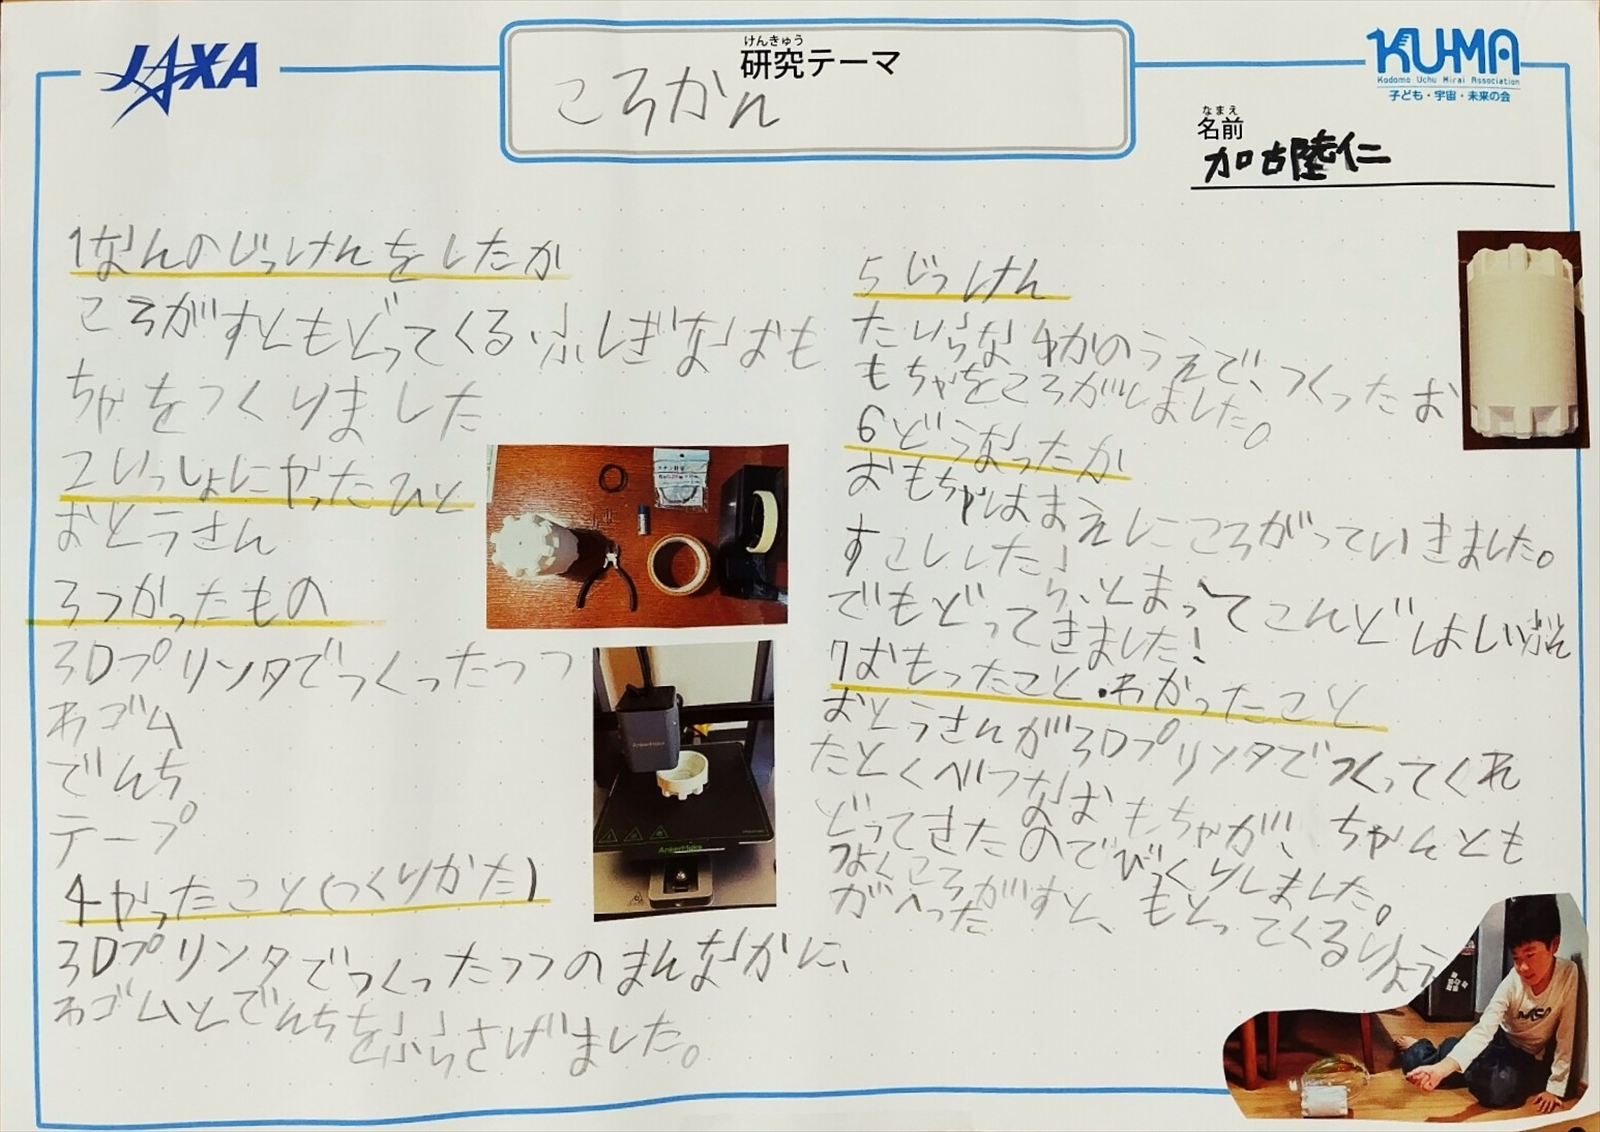 JAXA
けんきゅう
研究テーマ
ころかん
KU-MA
Kodomo Uchu Mirai Association
子ども・宇宙・未来の会
なまえ
名前
加古陸仁
1なんのじっけんをしたか
ころがすともどってくるふしぎなおも
ちゃをつくりました
2いっしょにやったひと
おとうさん
3つかったもの
3Dプリンタでつくったつつ
わゴム
でんち
テープ
4やったこと(つくりかた)
3Dプリンタでつくったつつのまんなかに、
わゴムとでんちを
ぶらさげました。
AnkerMake
AnkerMake
5じっけん
たいらなゆかのうえで、つくったお
もちゃをころがしました。
6どうなったか
おもちゃはまえにころがっていきました。
すこししたら、とまってこんどはじぶん
でもどってきました!
7おもったこと・わかったこと
おとうさんが3Dプリンタでつくってくれ
たとくべつなおもちゃが、ちゃんとも
どってきたのでびっくりしました。
つよくころがすと、もどってくるりょう
がへった